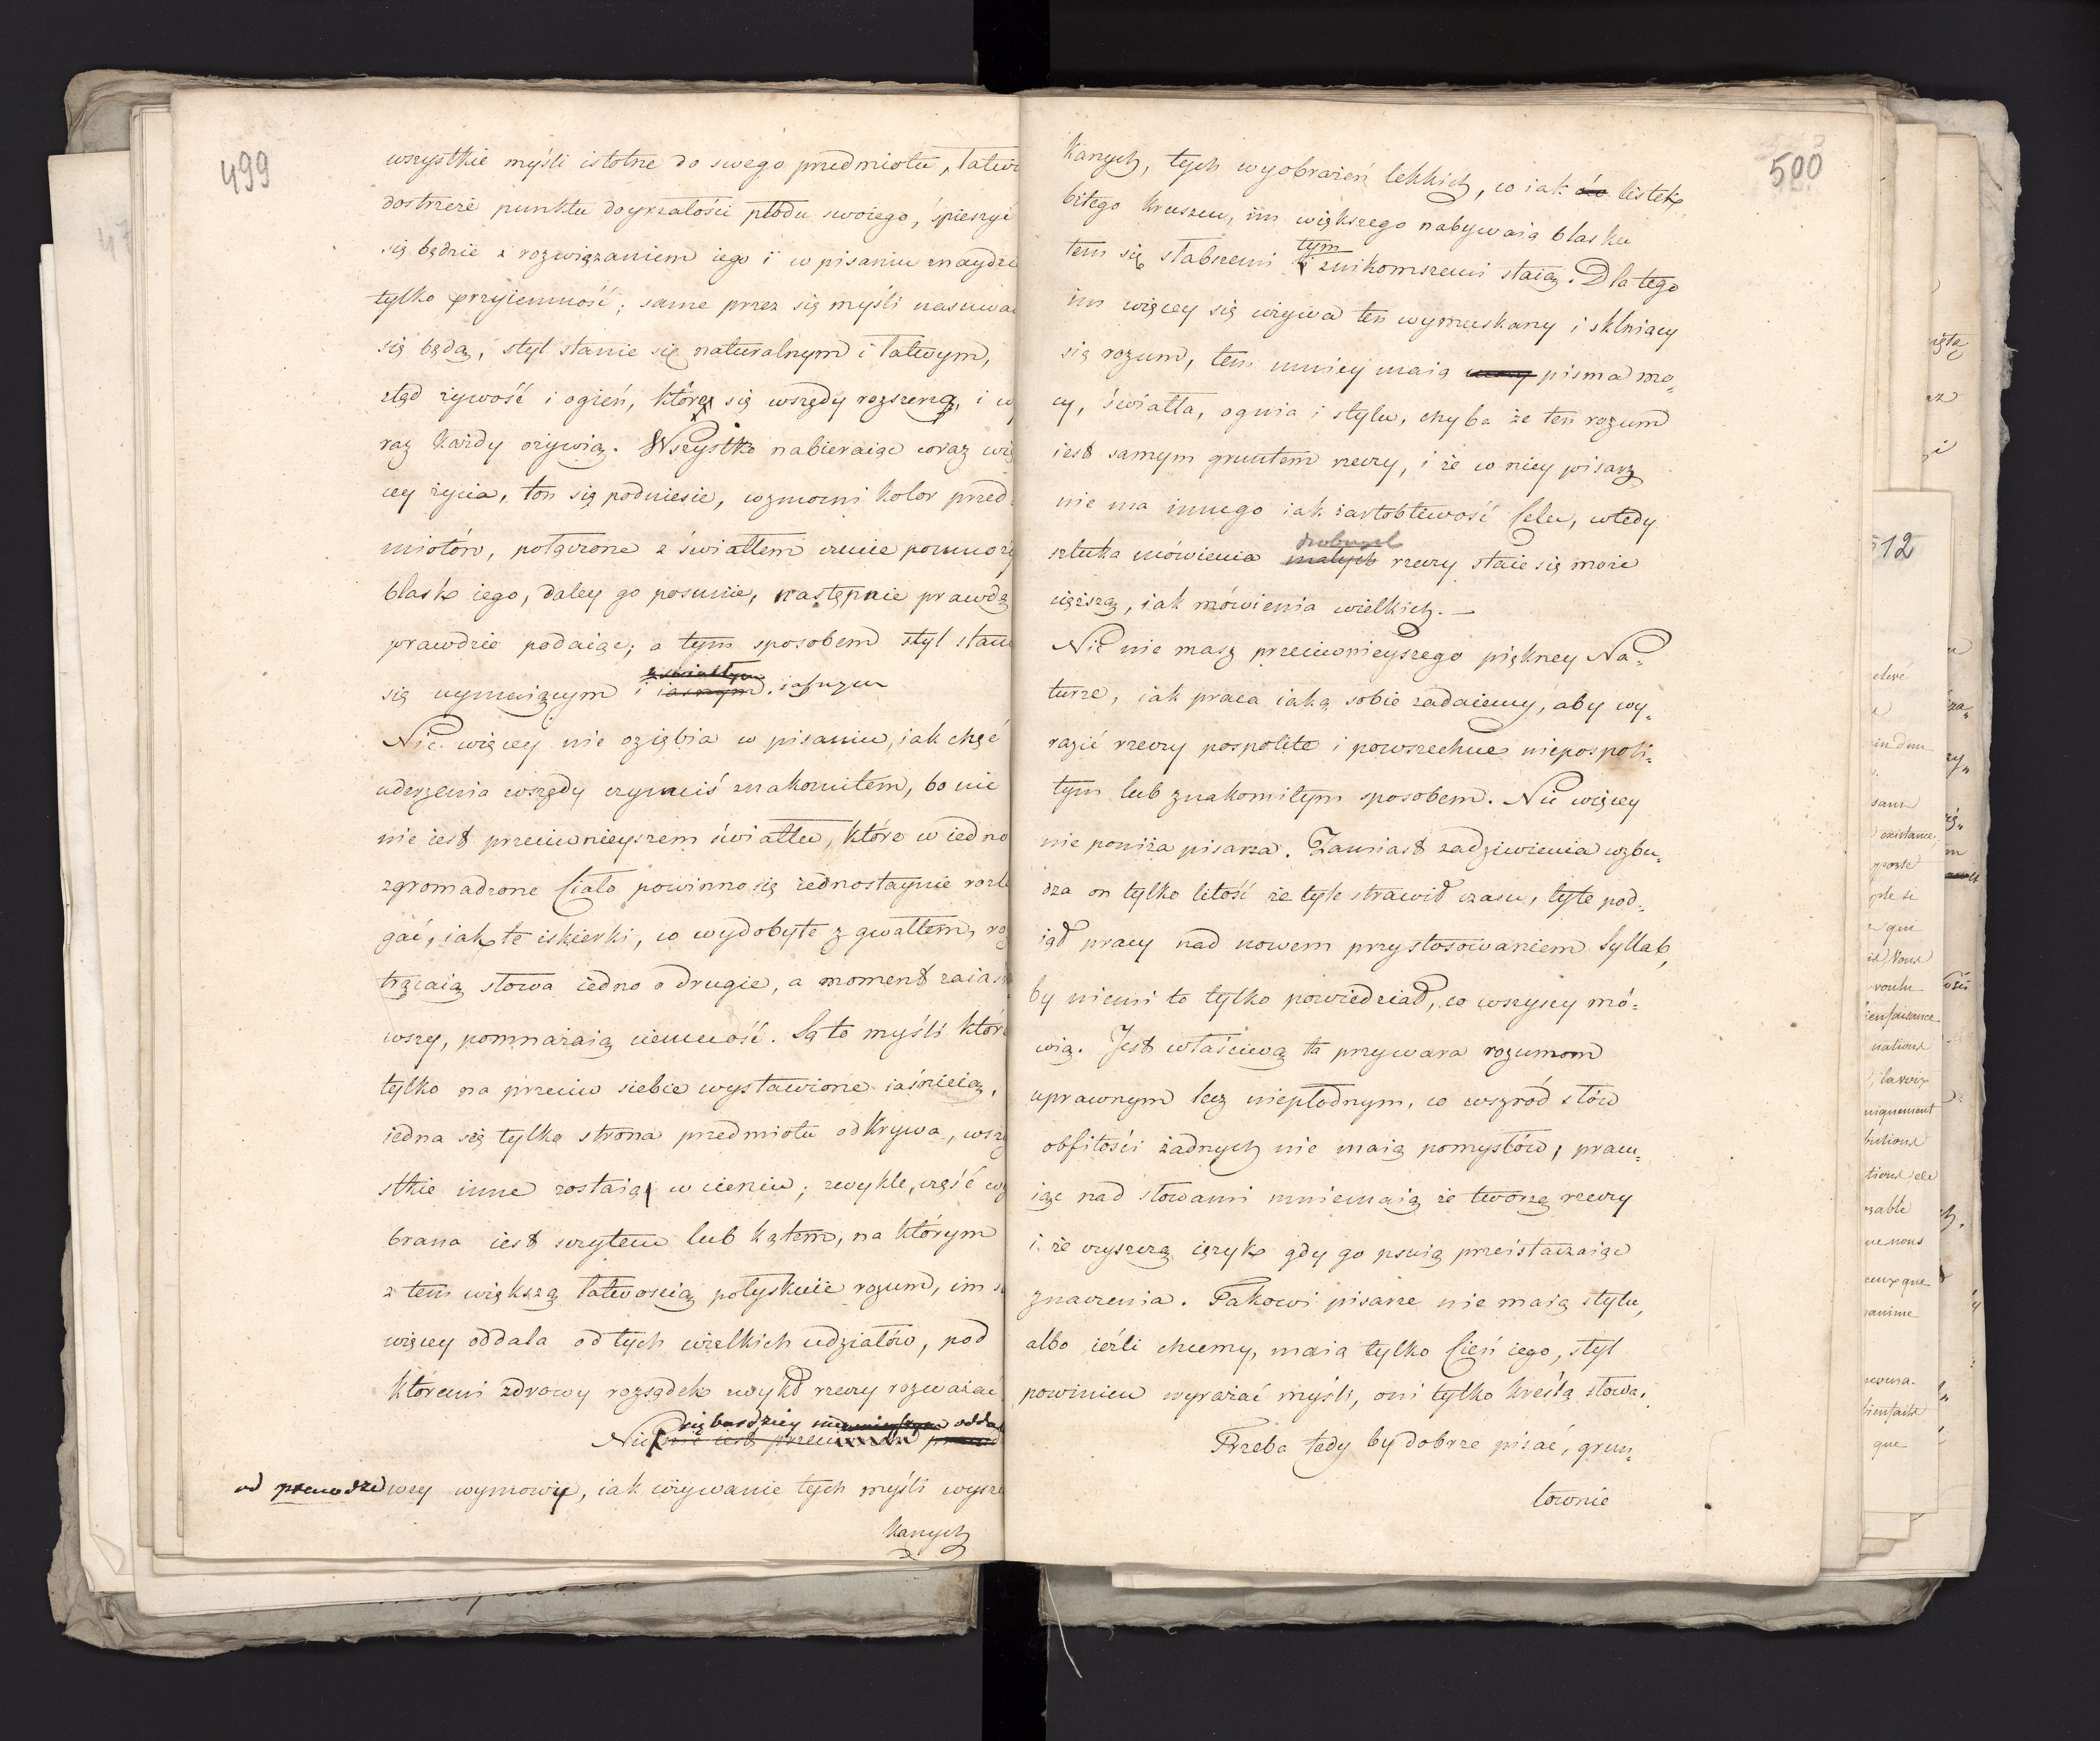 499
wszystkie myśli istotne do swego przedmiotu, łatwo
dostrzeże punktu doyrzałości płodu swoiego, śpieszyć
się będzie z rozwiązaniem iego i w pisaniu znaydzie
tylko przyiemność; same przez się myśli nasuwać
się będą, styl stanie się naturalnym i łatwym,
ztąd żywość i ogień, które się wszędy rozszerzą, i wy
raz każdy ożywią. Wszystko nabieraiąc coraz wię
cey życia, ton się podniesie, wzmocni kolor przed
miotów, połączone z światłem czucie pomnoży
blask iego, daley go posunie, następnie prawdę
prawdzie podaiąc; a tym sposobem styl stanie
się uymuiącym i iasnym. iasnym
Nic więcey nie oziębia w pisaniu, jak chęć
uderzenia wszędy czymciś znakomitem, bo nic
nie iest przeciwnieyszem światłu, które w iedno
zgromadzone Ciało powinno się iednostaynie rozle
gać, iak te iskierki, co wydobyte z gwałtem, roz
trącaią słowa iedno o drugie, a moment zaiaśni
wszy, pomnażaią ciemność. Są to myśli które
tylko na przeciw siebie wystawione iaśnieią,
iedna się tylko strona przedmiotu odkrywa, wszy
stkie inne zostaią w cieniu; zwykle, część wy
brana iest szczytem lub kątem, na którym
z tem większą łatwością połyskuie rozum, im się
więcey oddala od tych wielkich udziałów, pod
któremi zdrowy rozsądek zwykł rzeczy rozważać
się bardziey nie oddala
Nic nie iest
od prawdziwey wymowy, iak używanie tych myśli wyszu
kanych
500
kanych, tych wyobrażeń lekkich, co iak listek
bitego kruszcu, im większego nabywaią blasku
tym
tem się słabszemi i znikomszemi staią. Dlatego
im więcey się używa ten wymuskany i sklniący
się rozum, tem mniey maią pisma mo„
cy, światła, ognia i stylu, chyba że ten rozum
iest samym gruntem rzeczy, i że w niey pisarz
nie ma innego iak żartobliwość Celu, wtedy
drobnych
sztuka mówienia małych rzeczy staie się może
cięższą, iak mówienia wielkich. —
Nic nie masz przeciwnieyszego piękney Na„
turze, iak praca iaką sobie zadaiemy, aby wy„
razić rzeczy pospolite i powszechne niepospoli„
tym lub znakomitym sposobem. Nic więcey
nie poniża pisarza. Zamiast zadziwienia wzbu„
dza on tylko litość że tyle strawił czasu, tyle pod„
iął pracy nad nowem przystosowaniem Syllab,
by niemi to tylko powiedział, co wszyscy mó„
wią. Jest właściwą ta przywara rozumom
uprawnym lecz niepłodnym, co wszród słów
obfitości żadnych nie maią pomysłów; pracu„
iąc nad słowami mniemaią że tworzą rzeczy
i że czyszczą ięzyk gdy go psuią przeistaczaiąc
znaczenia. Takowi pisarze nie maią stylu,
albo ieśli chcemy, maią tylko Cień iego, styl
powinien wyrażać myśli, oni tylko kreślą słowa.
Trzeba tedy by dobrze pisać, grun„
townie
512